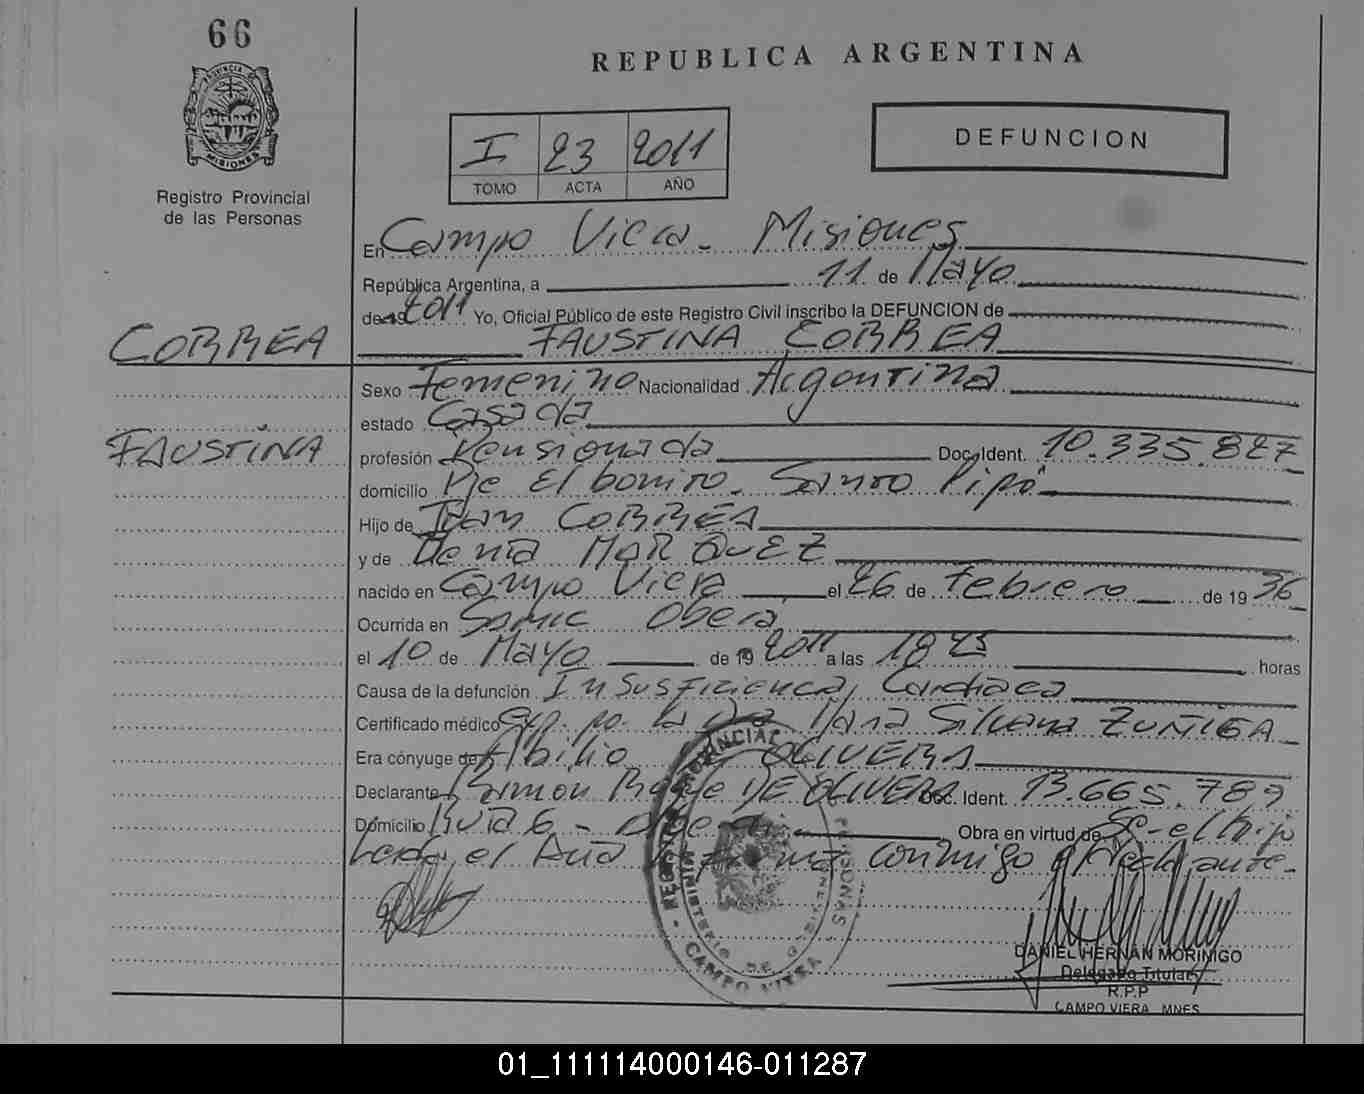 66
REPUBLICA ARGENTINA
PROVINCIA DE
MISIONES
Registro Provincial
de las Personas
I 23 2011
TOMO ACTA AÑO
DEFUNCION
En Campo Viera - Misiones
República Argentina, a 11 de Mayo
de 19 2011 Yo, Oficial Público de este Registro Civil inscribo la DEFUNCION de
CORREA
FAUSTINA CORREA
Sexo Femenino Nacionalidad Argentina
estado Casada
FAUSTINA
profesión Pensionada Doc. Ident. 10.335.827
domicilio Pje El bonito - Santo Pipó
Hijo de Juan CORREA
y de MARQUEZ
nacido en Campo Viera el 26 de Febrero de 1936
Ocurrida en Samic Oberá
el 10 de Mayo de 19 2011 a las 18 horas
Causa de la defunción Insuficiencia Cardiaca
Certificado médico Exp. po. la Dra Maria Silvana ZUÑIGA
Era cónyuge de Abilio DE OLIVERA
Declarante Ramón DE OLIVERA Doc. Ident. 13.665.787
Domicilio Ruta 6 - Obra en virtud de Se - el hijo
Leida el Acta la firma conmigo el declarante -
REGISTRO PROVINCIAL DE LAS PERSONAS
MINISTERIO DE GOBIERNO
CAMPO VIERA
DANIEL HERNAN MORINIGO
Delegado Titular
R.P.P
CAMPO VIERA MNES
01_111114000146-011287